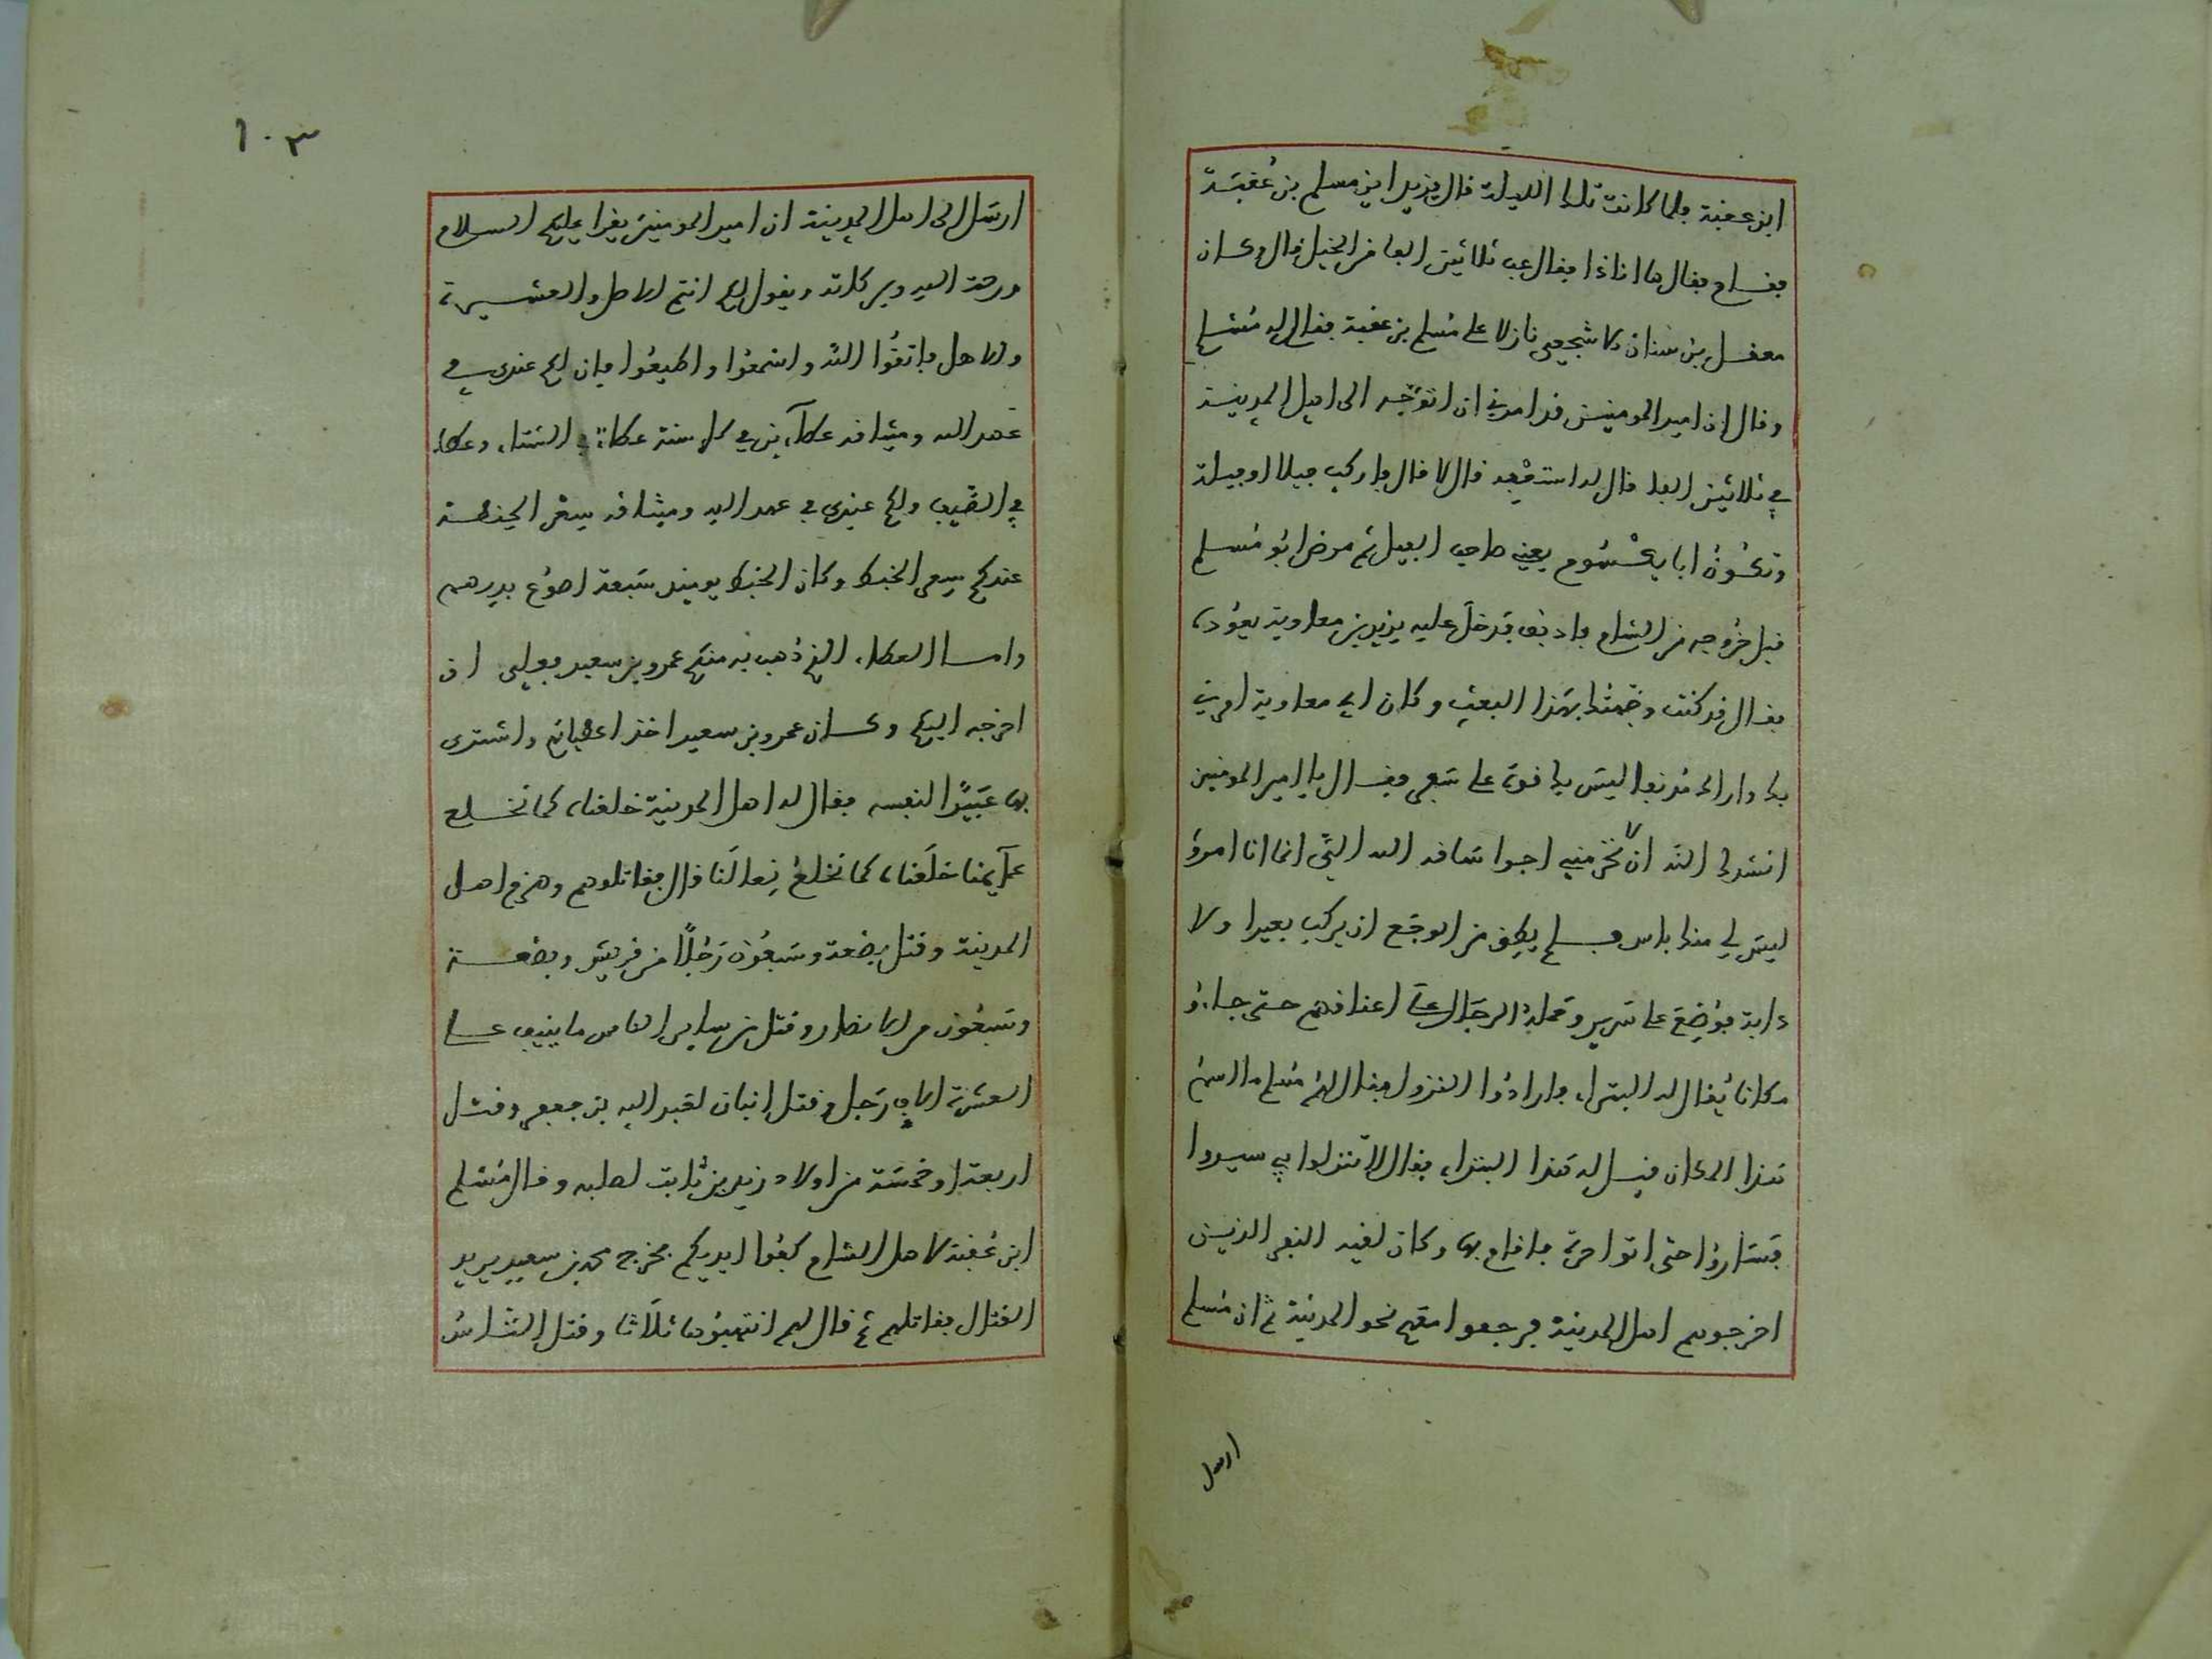 ابن عقبة فلما كانت تلك الليلة قال يزيد اين مسلم بن عُقبَة
فقام فقال ها اناذا فقال عب ثلاثين الفا من الخيل قال وكان
معقل بن سنان الاشجعي نازلا على مُسلم بن عقبة فقال له مُسْلم
وقال ان امير المومنين قد امرني ان اتوَجه الى اهل المدينة
في ثلاثين الفا قال له استعْفِه قال لا قال فاركب فيلا او فيلة
وتكُونُ ابا يكْسُوم يعني صاحب الفيل ثم مرض ابُو مُسلم
قبل خُروجه من الشام فادنف فدخلَ عليه يزيد بن معاوية يعُوده
فقال قد كنت وَجّهتُك بهَذا البعثِ وكان ابي معاوية امرني
بك واراك مُدنفا ليسَ بك قوة على سَفر فقال يا امير المومنين
انشدك الله ان لا تحرمني اجرا سَاقه الله اليَّ انما انا امرؤ
ليسَ لي منك باس فلم يطِق من الوجَع ان يركب بعيرا ولا
دابة فوُضِعَ على سَرير وحَملهُ الرجَال على اعناقهم حتى جاءوُ
مكانا يُقال له البتراء فارادُوا النزول فقال لهُم مُسلم ما اسمُ
هَذا المكان قيل له هَذا البتراء فقال لا تنزلوا به سيروا
فسَاروُا حتى اتوا حرة فاقام بها وكان لقيه النفر الذين
اخرجوهم اهل المدينة فرجعوا معَهم نحو المدينة ثم ان مُسلم
ارسل
١٠٣
ارسَل الى اهل المدينة ان امير المومنينَ يقرا عليكم السلام
ورحمة الله وبركاته ويقول لكم انتم الاصل والعشيرة
والاهل فاتقُوا اللَّه واسْمعُوا واطيعُوا فان لكم عندي في
عَهد الله وميثاقه عطآءين في كل سنة عطاءً في الشتاء وعطاء
في الصَّيف ولكم عندي في عهد الله وميثاقه سِعْر الحِنطة
عندكم سِعر الخبط وكان الخبط يوميذ سَبعة اصوُع بدرهم
واما العطاء الذي ذُهب به منكم عمرو بن سعيد فعلي ان
اخرجه اليكم وكان عمرو بن سعيد اخذ اعطياتهم واشترى
بها عَبيدًا لنفسه فقال له اهل المدينة خلعناه كما نخلع
عمآيمنا خلَعناه كما نخلعُ نِعالَنا قال فقاتلوهم وهزم اهل
المدينة وقتل بضعة وسَبعُون رَجُلًا من قريش وبضعة
وسَبعُون من الانصار وقتل من ساير الناس ما ينيف على
العشَرة الاف رَجل وقتل ابنان لعَبد الله بن جعفر وقتل
اربعة او خمسَة من اولاد زيد بن ثابت لصلبه وقال مُسْلم
ابن عُقبة لاهل الشام كفُوا ايديكم فخرج محمد بن سعيد يريد
القتال فقاتلهم ثم قال لهم انتهبُوها ثلَاثا وقتل الناسُ